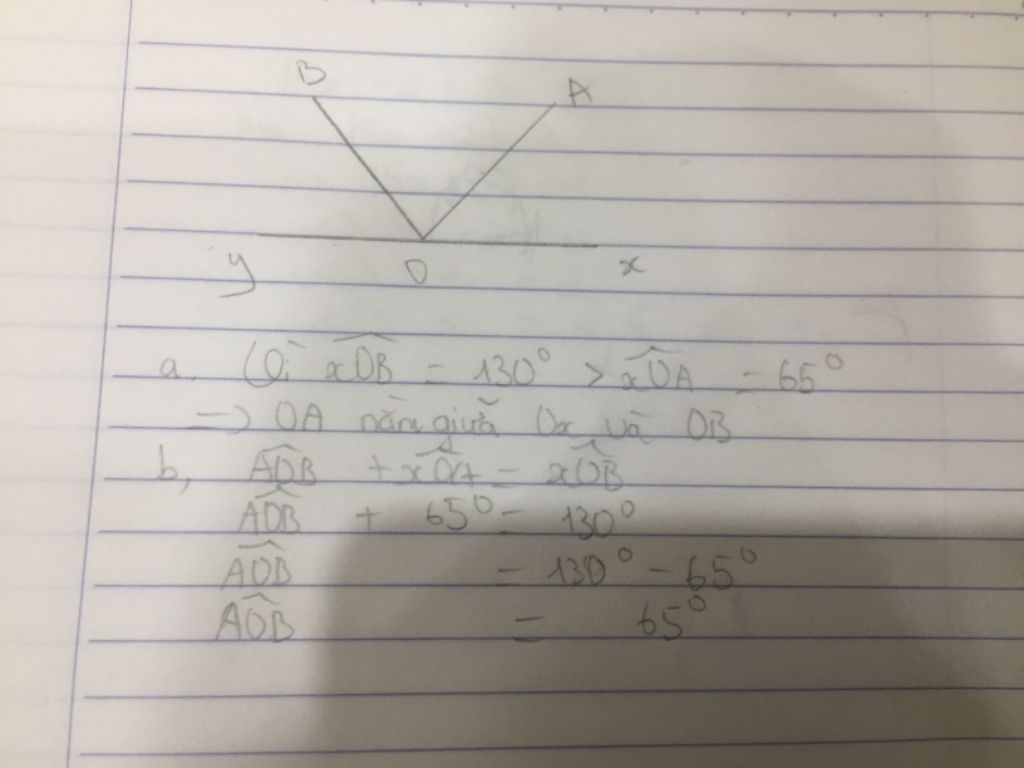 B
A
y
O
x
a. Vì xOB = 130° > xOA = 65°
=> OA nằm giữa Ox và OB
b, AOB + xOA = xOB
AOB + 65° = 130°
AOB = 130° - 65°
AOB = 65°